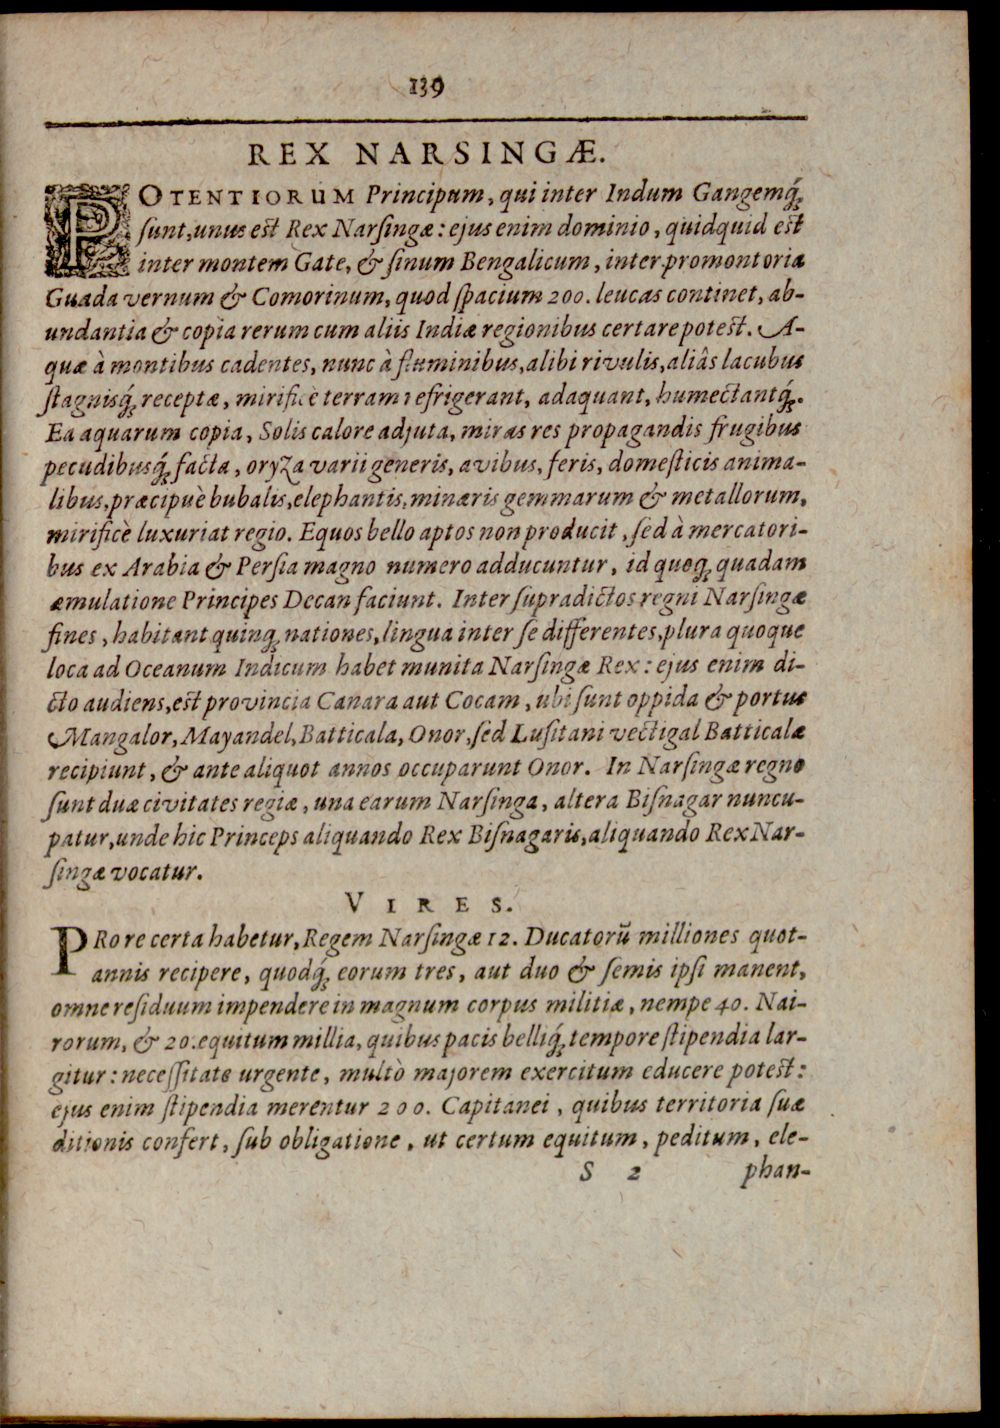 139
REX NARSINGÆ.
POTENTIORUM Principum, qui inter Indum Gangemq́;
ſunt, unus eſt Rex Narſingæ: ejus enim dominio, quidquid eſt
inter montem Gate, & ſinum Bengalicum, inter promontoria
Guadavernum & Comorinum, quod ſpacium 200. leucas continet, ab-
undantia & copia rerum cum aliis Indiæ regionibus certare poteſt. A-
quæ à montibus cadentes, nunc à fluminibus, alibi rivulis, aliâs lacubus
ſtagnisq́; receptæ, mirificè terram refrigerant, adaquant, humectantq́;.
Ea aquarum copia, Solis calore adjuta, miras res propagandis frugibus
pecudibusq́; facta, oryza varii generis, avibus, feris, domeſticis anima-
libus, præcipuè bubalis, elephantis, minæris gemmarum & metallorum,
mirificè luxuriat regio. Equos bello aptos non producit, ſed à mercatori-
bus ex Arabia & Perſia magno numero adducuntur, id quoq; quadam
æmulatione Principes Decan faciunt. Inter ſupradictos regni Narſingæ
fines, habitant quinq; nationes, lingua inter ſe differentes, plura quoque
loca ad Oceanum Indicum habet munita Narſingæ Rex: ejus enim di-
cto audiens, eſt provincia Canara aut Cocam, ubi ſunt oppida & portus
Mangalor, Mayandel, Batticala, Onor, ſed Luſitani vectigal Batticalæ
recipiunt, & ante aliquot annos occuparunt Onor. In Narſingæ regno
ſunt duæ civitates regiæ, una earum Narſinga, altera Biſnagar nuncu-
patur, unde hic Princeps aliquando Rex Biſnagaris, aliquando Rex Nar-
ſingæ vocatur.
VIRES.
PRo re certa habetur, Regem Narſingæ 12. Ducatorũ milliones quot-
annis recipere, quodq́; eorum tres, aut duo & ſemis ipſi manent,
omne reſiduum impendere in magnum corpus militiæ, nempe 40. Nai-
rorum, & 20. equitum millia, quibus pacis belliq́; tempore ſtipendia lar-
gitur: neceſſitate urgente, multò majorem exercitum educere poteſt:
ejus enim ſtipendia merentur 200. Capitanei, quibus territoria ſuæ
ditionis confert, ſub obligatione, ut certum equitum, peditum, ele-
S 2 phan-